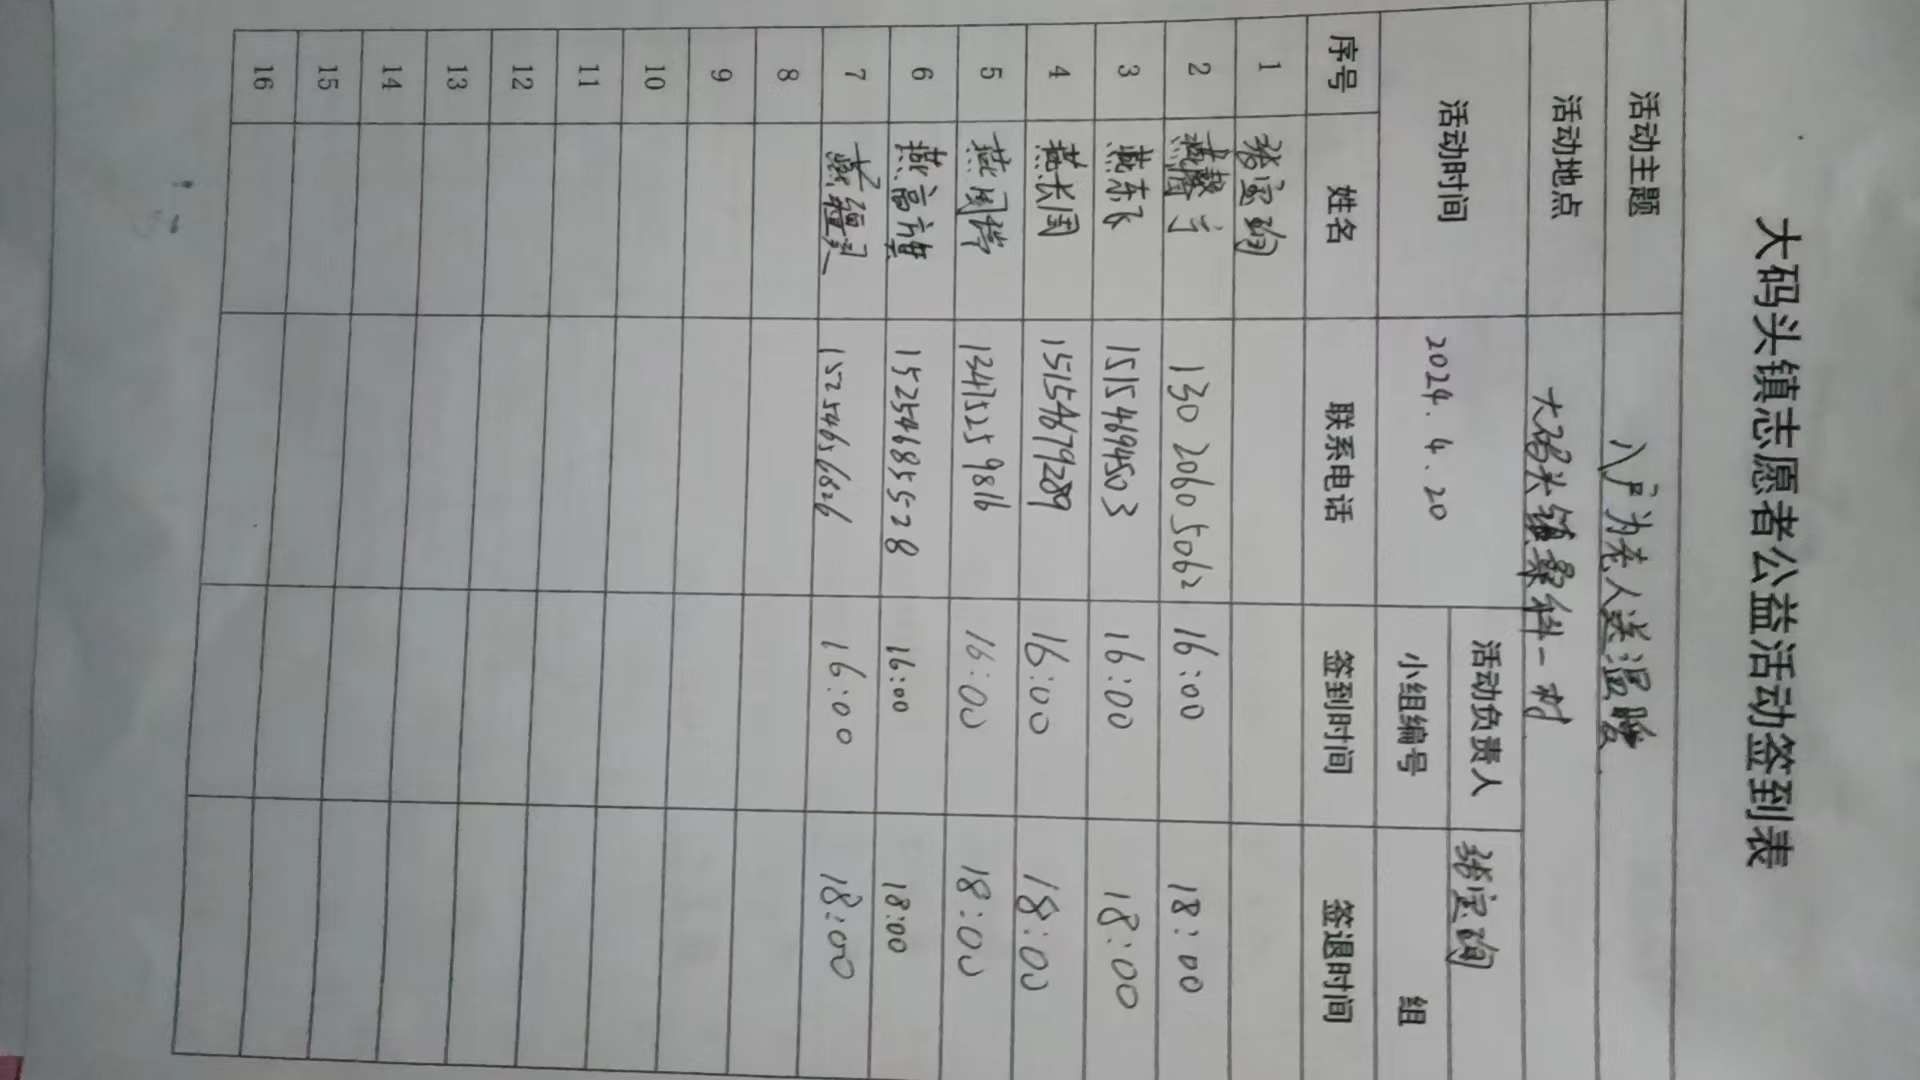 大码头镇志愿者公益活动签到表
活动主题 入户为老人送温暖
活动地点 大码头镇桑科一村
活动时间 2024.4.20 活动负责人 张宝珣
小组编号 组
序号 姓名 联系电话 签到时间 签退时间
1 张宝珣
2 燕 13020605062 16:00 18:00
3 燕东飞 15154694503 16:00 18:00
4 燕长国 15154679289 16:00 18:00
5 燕 13475259816 16:00 18:00
6 燕高旗 15254685528 16:00 18:00
7 燕 15254656826 16:00 18:00
8
9
10
11
12
13
14
15
16